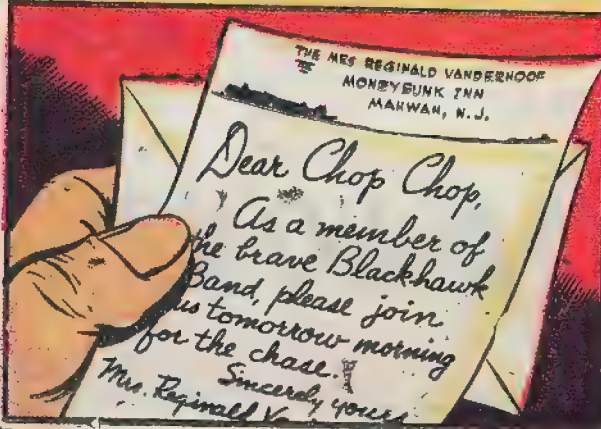 THE MRS REGINALD VANDERHOOF
MONEYBUNK INN
MAHWAH, N.J.
Dear Chop Chop,
As a member of
the brave Blackhawk
Band, please join
us tomorrow morning
for the chase.
Sincerely yours
Mrs. Reginald V